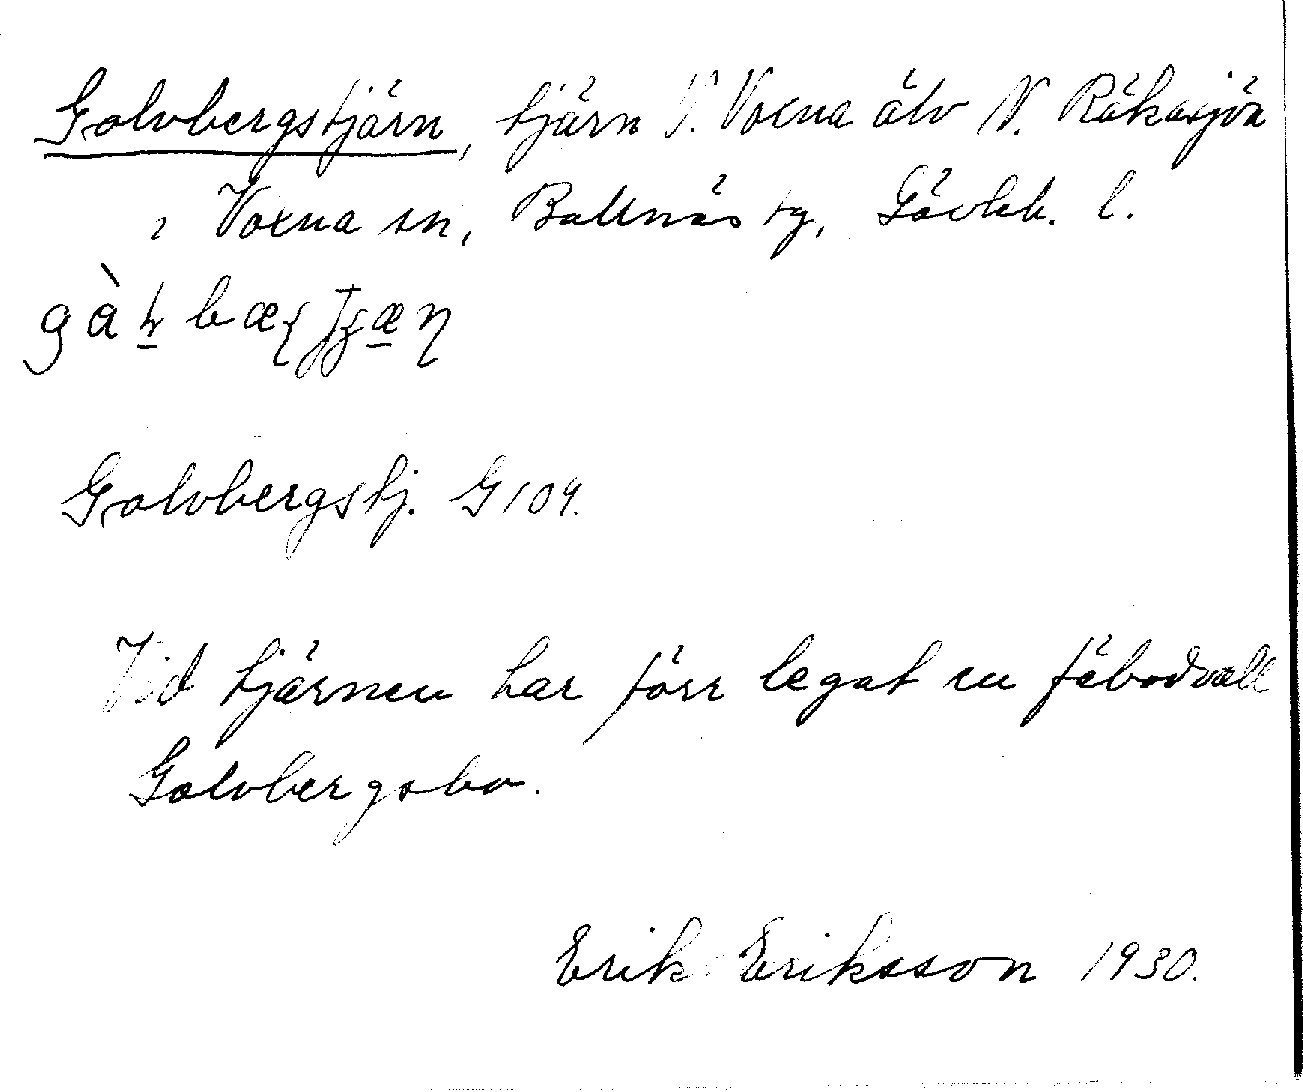 Golvbergstjärn, tjärn V. Voxna älv N. Råkasjön
i Voxna sn, Bollnäs tg, Gävleb. l.
Golvbergstj. G 109.
Vid tjärnen har förr legat en fäbodvall
Golvbergsbo.
Erik Eriksson 1930.